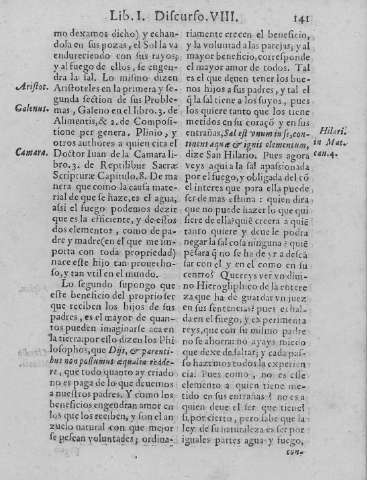 Lib. I. Discurso. VIII.
141
mo dexamos dicho) y echan-
dola en sus pozas, el Sol la va
endureciendo con sus rayos,
y al fuego de ellos, se engen-
dra la sal. Lo mismo dizen
Aristot.
Aristoteles en la primera y se-
gunda section de sus Proble-
Galenus.
mas, Galeno en el libro. 3. de
Alimentis, & 2. de Composi-
tione per genera, Plinio, y
otros authores a quien cita el
Camara.
Doctor Iuan de la Camara li-
bro. 3. de Reptilibus Sacræ
Scripturæ Capitulo. 8. De ma
nera que como la causa mate-
rial de que se haze, es el agua,
assi el fuego podemos dezir
que es la efficiente, y de ellos
dos elementos, como de pa-
dre y madre (en el que me im-
porta con toda propriedad)
nace este hijo tan prouecho-
so, y tan vtil en el mundo.
Lo segundo supongo que
este beneficio del proprio ser
que reciben los hijos de sus
padres, es el mayor de quan-
tos pueden imaginarse aca en
la tierra: por ello dizen los Phi
losophos, que Dijs, & parenti-
bus non possumus æqualia redde-
re, que todo quanto ay criado
no es paga de lo que deuemos
a nuestros padres. Y como los
beneficios engendran amor en
los que los reciben, y son el an
zuelo natural con que mejor
se pescan voluntades; ordina-
riamente crecen el beneficio,
y la voluntad a las parejas, y al
mayor beneficio, corresponde
el mayor amor de todos. Tal
es el que deuen tener los bue-
nos hijos a sus padres, y tal el
q̃ la sal tiene a los suyos, pues
los quiere tanto que los tiene
metidos en su coraçõ y en sus
entrañas, Sal est vnum in se, con-
Hilari.
tinens aquæ & ignis elementum,
in Mat.
dize San Hilario. Pues agora
can. 4.
veys aqui a la sal apassionada
por el fuego, y obligada del tõ
el interes que para ella puede
ser de mas estima: quien dira
que no puede hazer lo que qui
siere de ella? què creera a quiẽ
tanto quiere y deue le podra
negar la sal cola ninguna: quiẽ
pẽsara q̃ no se ha de yr a desca
sar con el y en el como en su
centro? Quereys ver vn diui-
no Hieroglyphico de la entere
za que ha de guardar vn juez
en sus sentencias? pues es hal-
da en el fuego, y experimenta
reys, que con su mismo padre
no se ahorra: no ayays miedo
que dexe de saltar; y cada pas-
so hazemos todos la experien-
cia. Pues como, no es esse
elemento a quien tiene me-
tido en sus entrañas? no es a
quien deue el ser que tiene?
si, por cierto, pero sabe que la
ley de su naturaleza es ser por
iguales partes agua y fuego,
con-